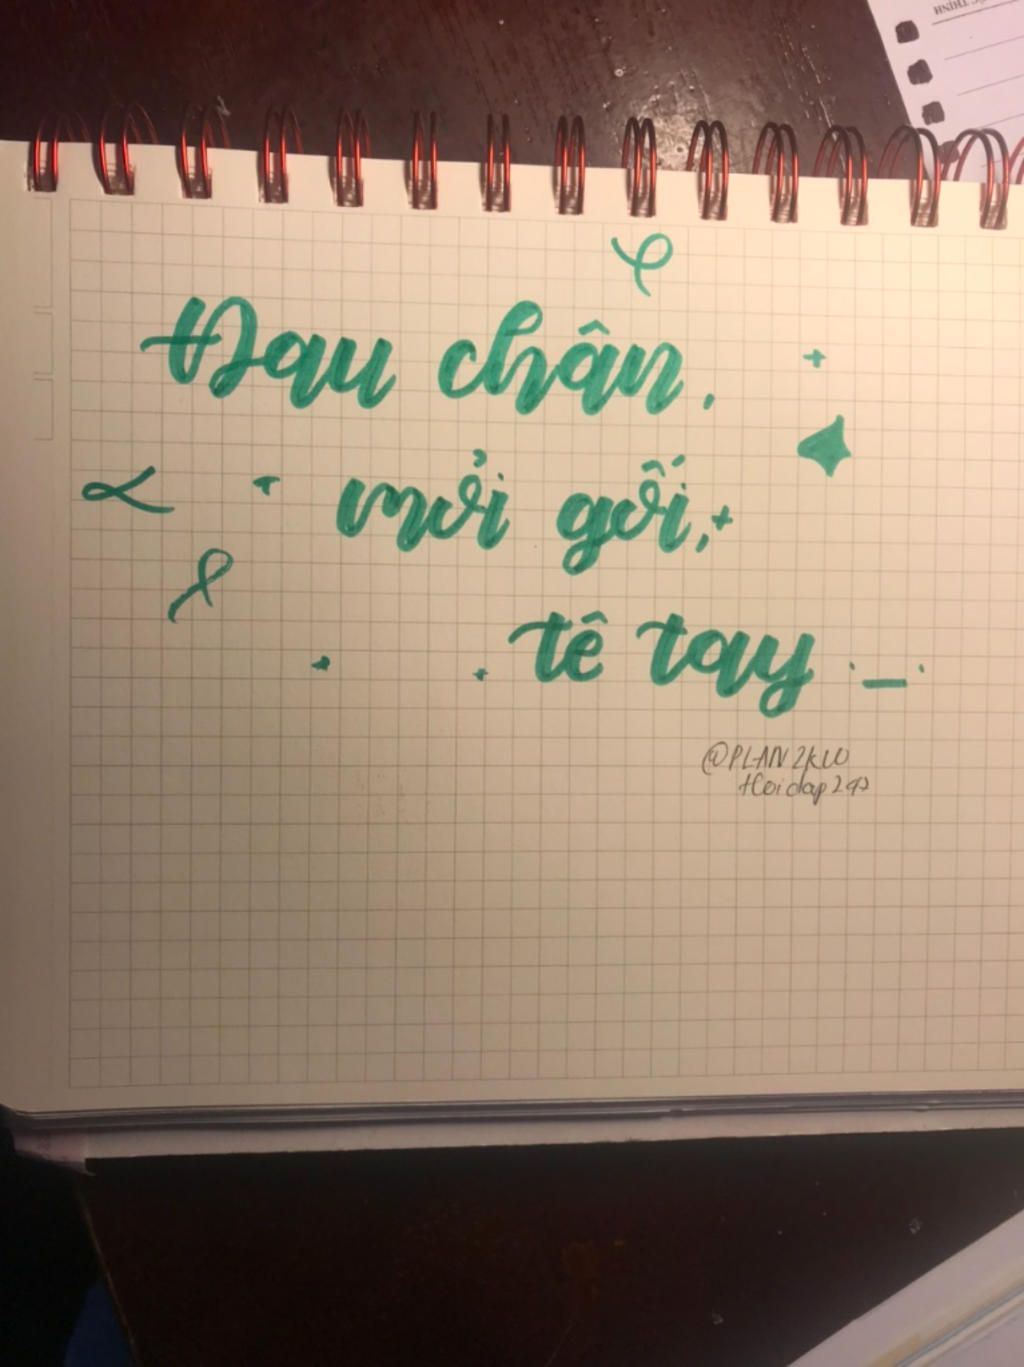 Đau chân,
mỏi gối,
tê tay
@PLAN2KW
Hoidap247